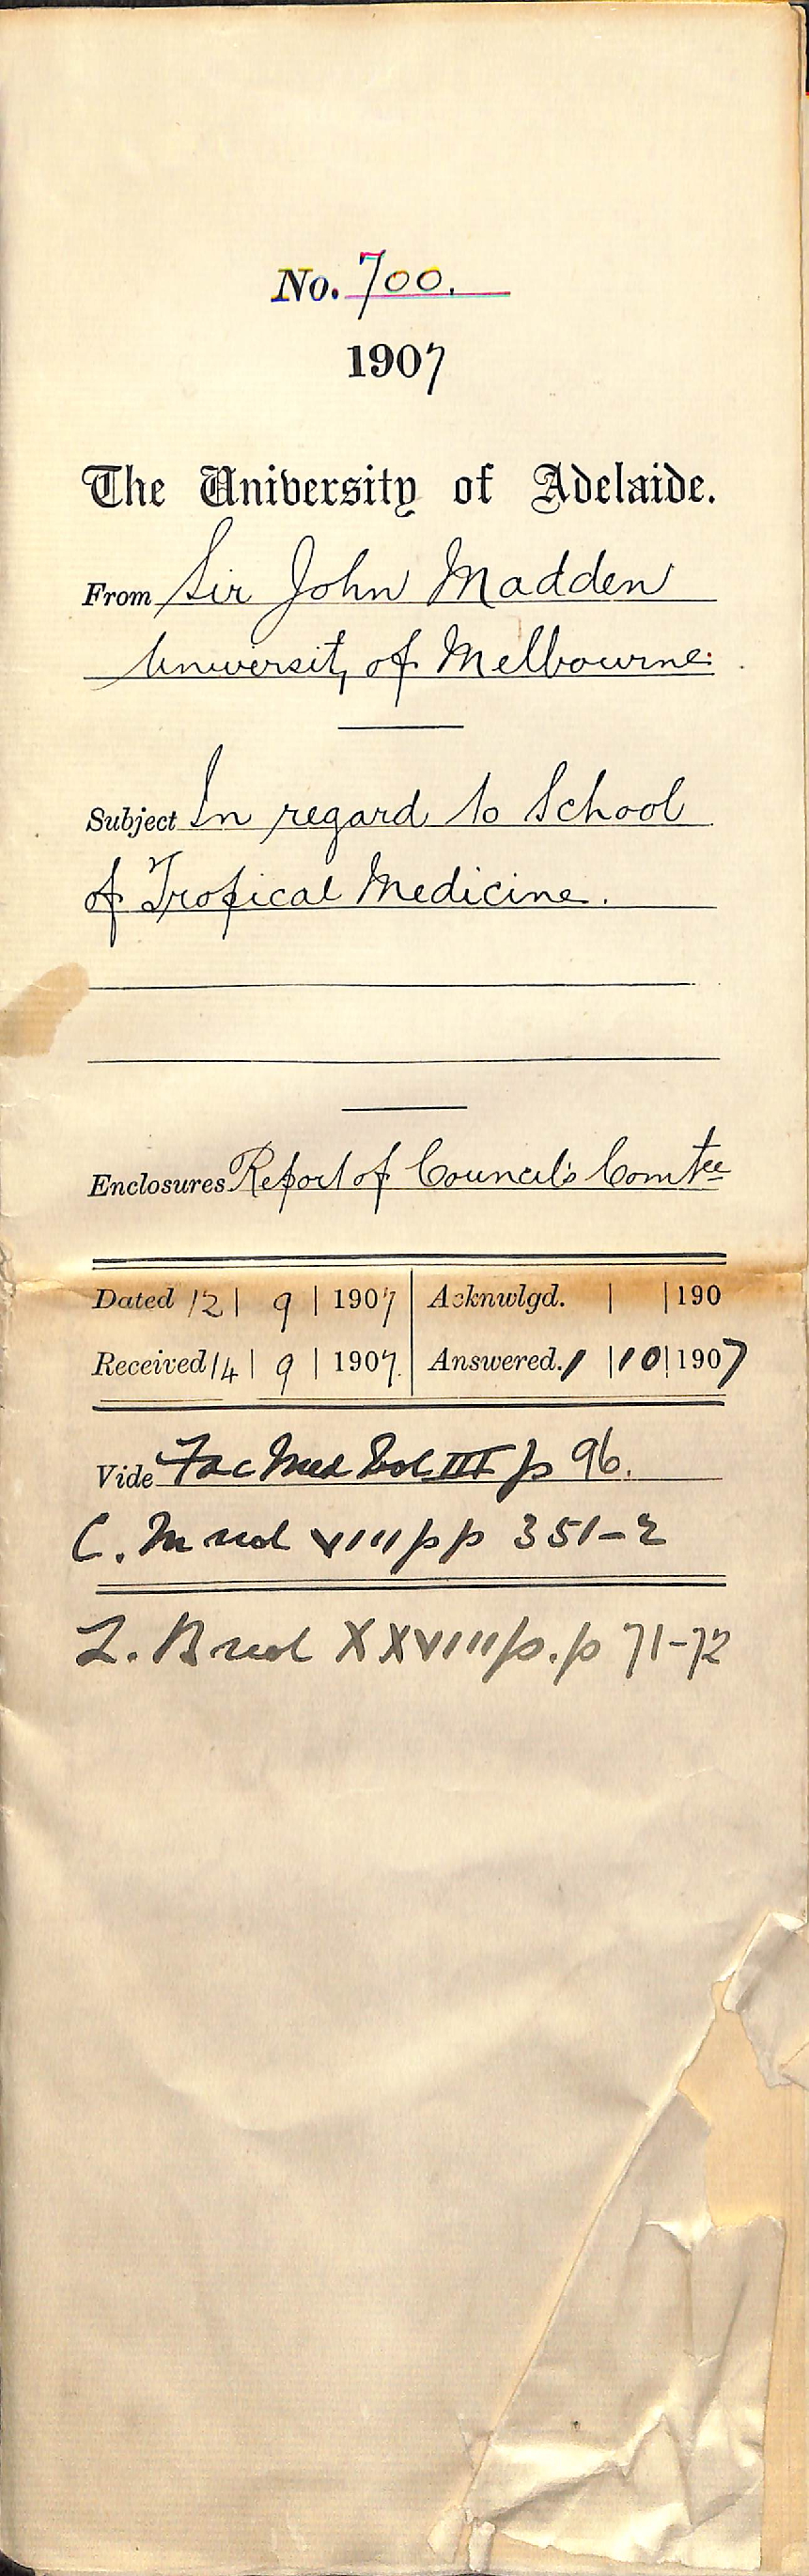 No. 700.
1907
The University of Adelaide.
From Sir John Madden
University of Melbourne.
Subject In regard to School
of Tropical Medicine.
Enclosures Report of Council's Comtee
Dated 12 | 9 | 1907 Acknwlgd. | | 190
Received 14 | 9 | 1907. Answered. 1 | 10 | 1907
Vide Fac Med Vol III p 96.
C. M vol VIII pp 351-2
L. B vol XXVIII p.p 71-72